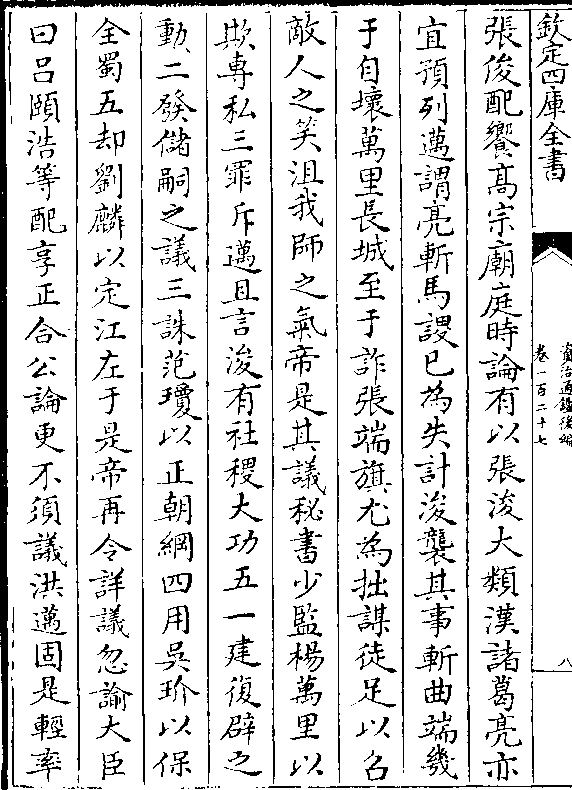 欽定四庫全書
資治通鑑後編
卷一百二十七
八
張俊配饗髙宗廟庭時論有以張浚大類漢諸葛亮亦
宜預列邁謂亮斬馬謖已為失計浚襲其事斬曲端幾
于自壞萬里長城至于詐張端旗尤為拙謀徒足以召
敵人之笑沮我師之氣帝是其議秘書少監楊萬里以
欺專私三罪斥邁且言浚有社稷大功五一建復辟之
動二發儲嗣之議三誅范瓊以正朝綱四用吳玠以保
全蜀五却劉麟以定江左于是帝再令詳議忽諭大臣
曰吕頤浩等配享正合公論更不須議洪邁固是輕率